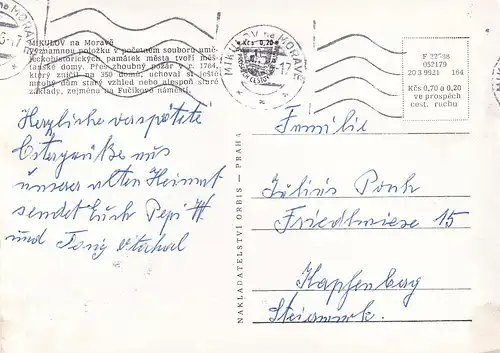 MIKULOV na Moravě
Významnou položku v početném souboru umě-
leckohistorických památek města tvoří měš-
ťanské domy. Přes zhoubný požár v r. 1784,
který zničil na 350 domů, uchoval si ještě
mnohý dům starý vzhled nebo alespoň staré
základy, zejména na Fučíkově náměstí.
Herzliche verspätete
Ostergrüße aus
unserer alten Heimat
sendet Euch Pepi W
und Tony
NAKLADATELSTVÍ ORBIS — PRAHA
MIKULOV na MORAVĚ
Kčs 0,20
17
F 22*38
052179
20 3 9921 164
Kčs 0,70 a 0,20
ve prospěch
cest. ruchu
Familie
Julius Ponk
Friedlwiese 15
Kapfenberg
Steiermark.